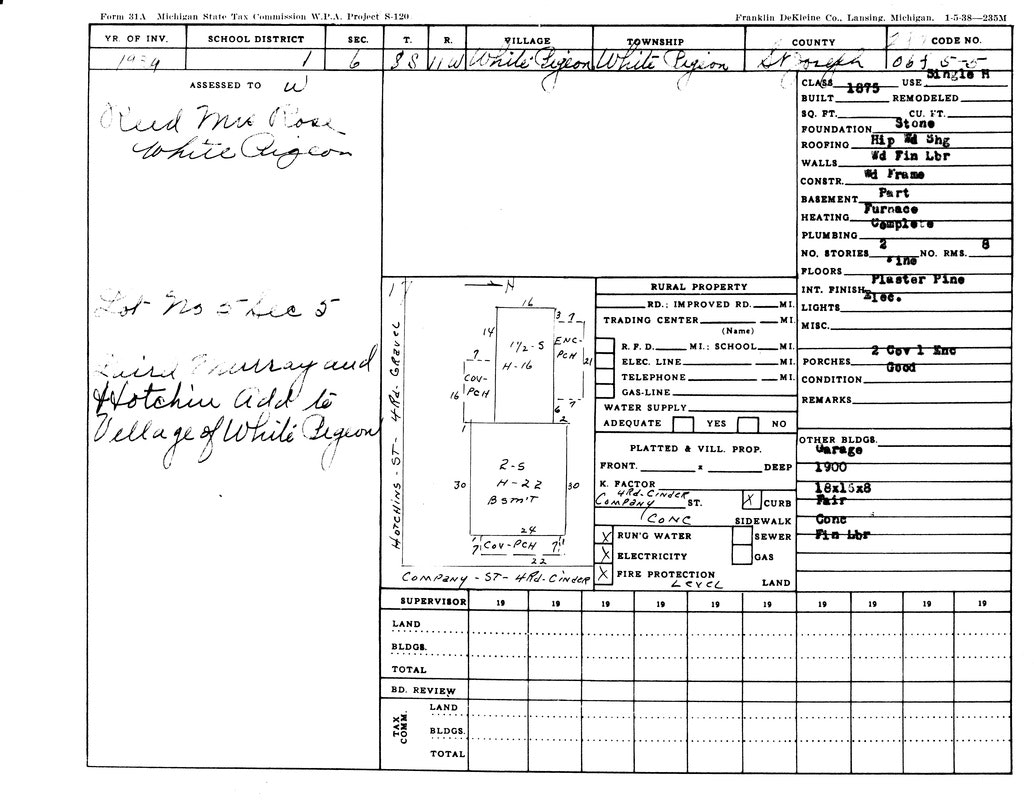 Form 31A Michigan State Tax Commission W.P.A. Project S-120
Franklin DeKleine Co., Lansing, Michigan. 1-5-38—235M
YR. OF INV. SCHOOL DISTRICT SEC. T. R. VILLAGE TOWNSHIP COUNTY CODE NO.
1939 1 6 8S 11W White Pigeon White Pigeon St Joseph
ASSESSED TO W
Reed Mrs Rose
White Pigeon
Lot No 5 Sec 5
Laird Murray and
Hotchin Add to
Village of White Pigeon
N
16
14
1½-S
H-16
3 7
ENC-
PCH
21
7
COV-
PCH
16
6 7
2
1
30
2-S
H-22
BSMT
30
24
7 COV-PCH 7
22
HOTCHINS-ST-4RD-GRAVEL
COMPANY-ST-4RD-CINDER
RURAL PROPERTY
RD.; IMPROVED RD. MI.
TRADING CENTER MI.
(Name)
R. F. D. MI.; SCHOOL MI.
ELEC. LINE MI.
TELEPHONE MI.
GAS-LINE
WATER SUPPLY
ADEQUATE YES NO
PLATTED & VILL. PROP.
FRONT. x DEEP
K. FACTOR
4RD-CINDER
COMPANY ST. X CURB
CONC SIDEWALK
X RUN'G WATER SEWER
X ELECTRICITY GAS
X FIRE PROTECTION
LEVEL LAND
CLASS USE Single H
BUILT 1875 REMODELED
SQ. FT. CU. FT.
FOUNDATION Stone
ROOFING Hip Wd Shg
WALLS Wd Fin Lbr
CONSTR. Wd Frame
BASEMENT Part
HEATING Furnace
PLUMBING Complete
NO. STORIES 2 NO. RMS. 8
FLOORS Pine
INT. FINISH Plaster Pine
LIGHTS Elec.
MISC.
PORCHES 2 Cov 1 Enc
CONDITION Good
REMARKS
OTHER BLDGS.
Garage
1900
18x16x8
Fair
Conc
Fin Lbr
SUPERVISOR 19 19 19 19 19 19 19 19 19 19
LAND
BLDGS.
TOTAL
BD. REVIEW
TAX COMM.
LAND
BLDGS.
TOTAL